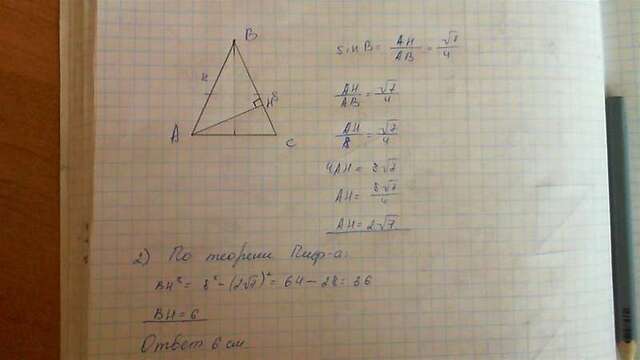 B
8
8
H
A
C
sin B = AH/AB = √7/4
AH/AB = √7/4
AH/8 = √7/4
4AH = 8√7
AH = 8√7/4
AH = 2√7
2) По теореме Пиф-а:
BH² = 8² - (2√7)² = 64 - 28 = 36
BH = 6
Ответ 6 см